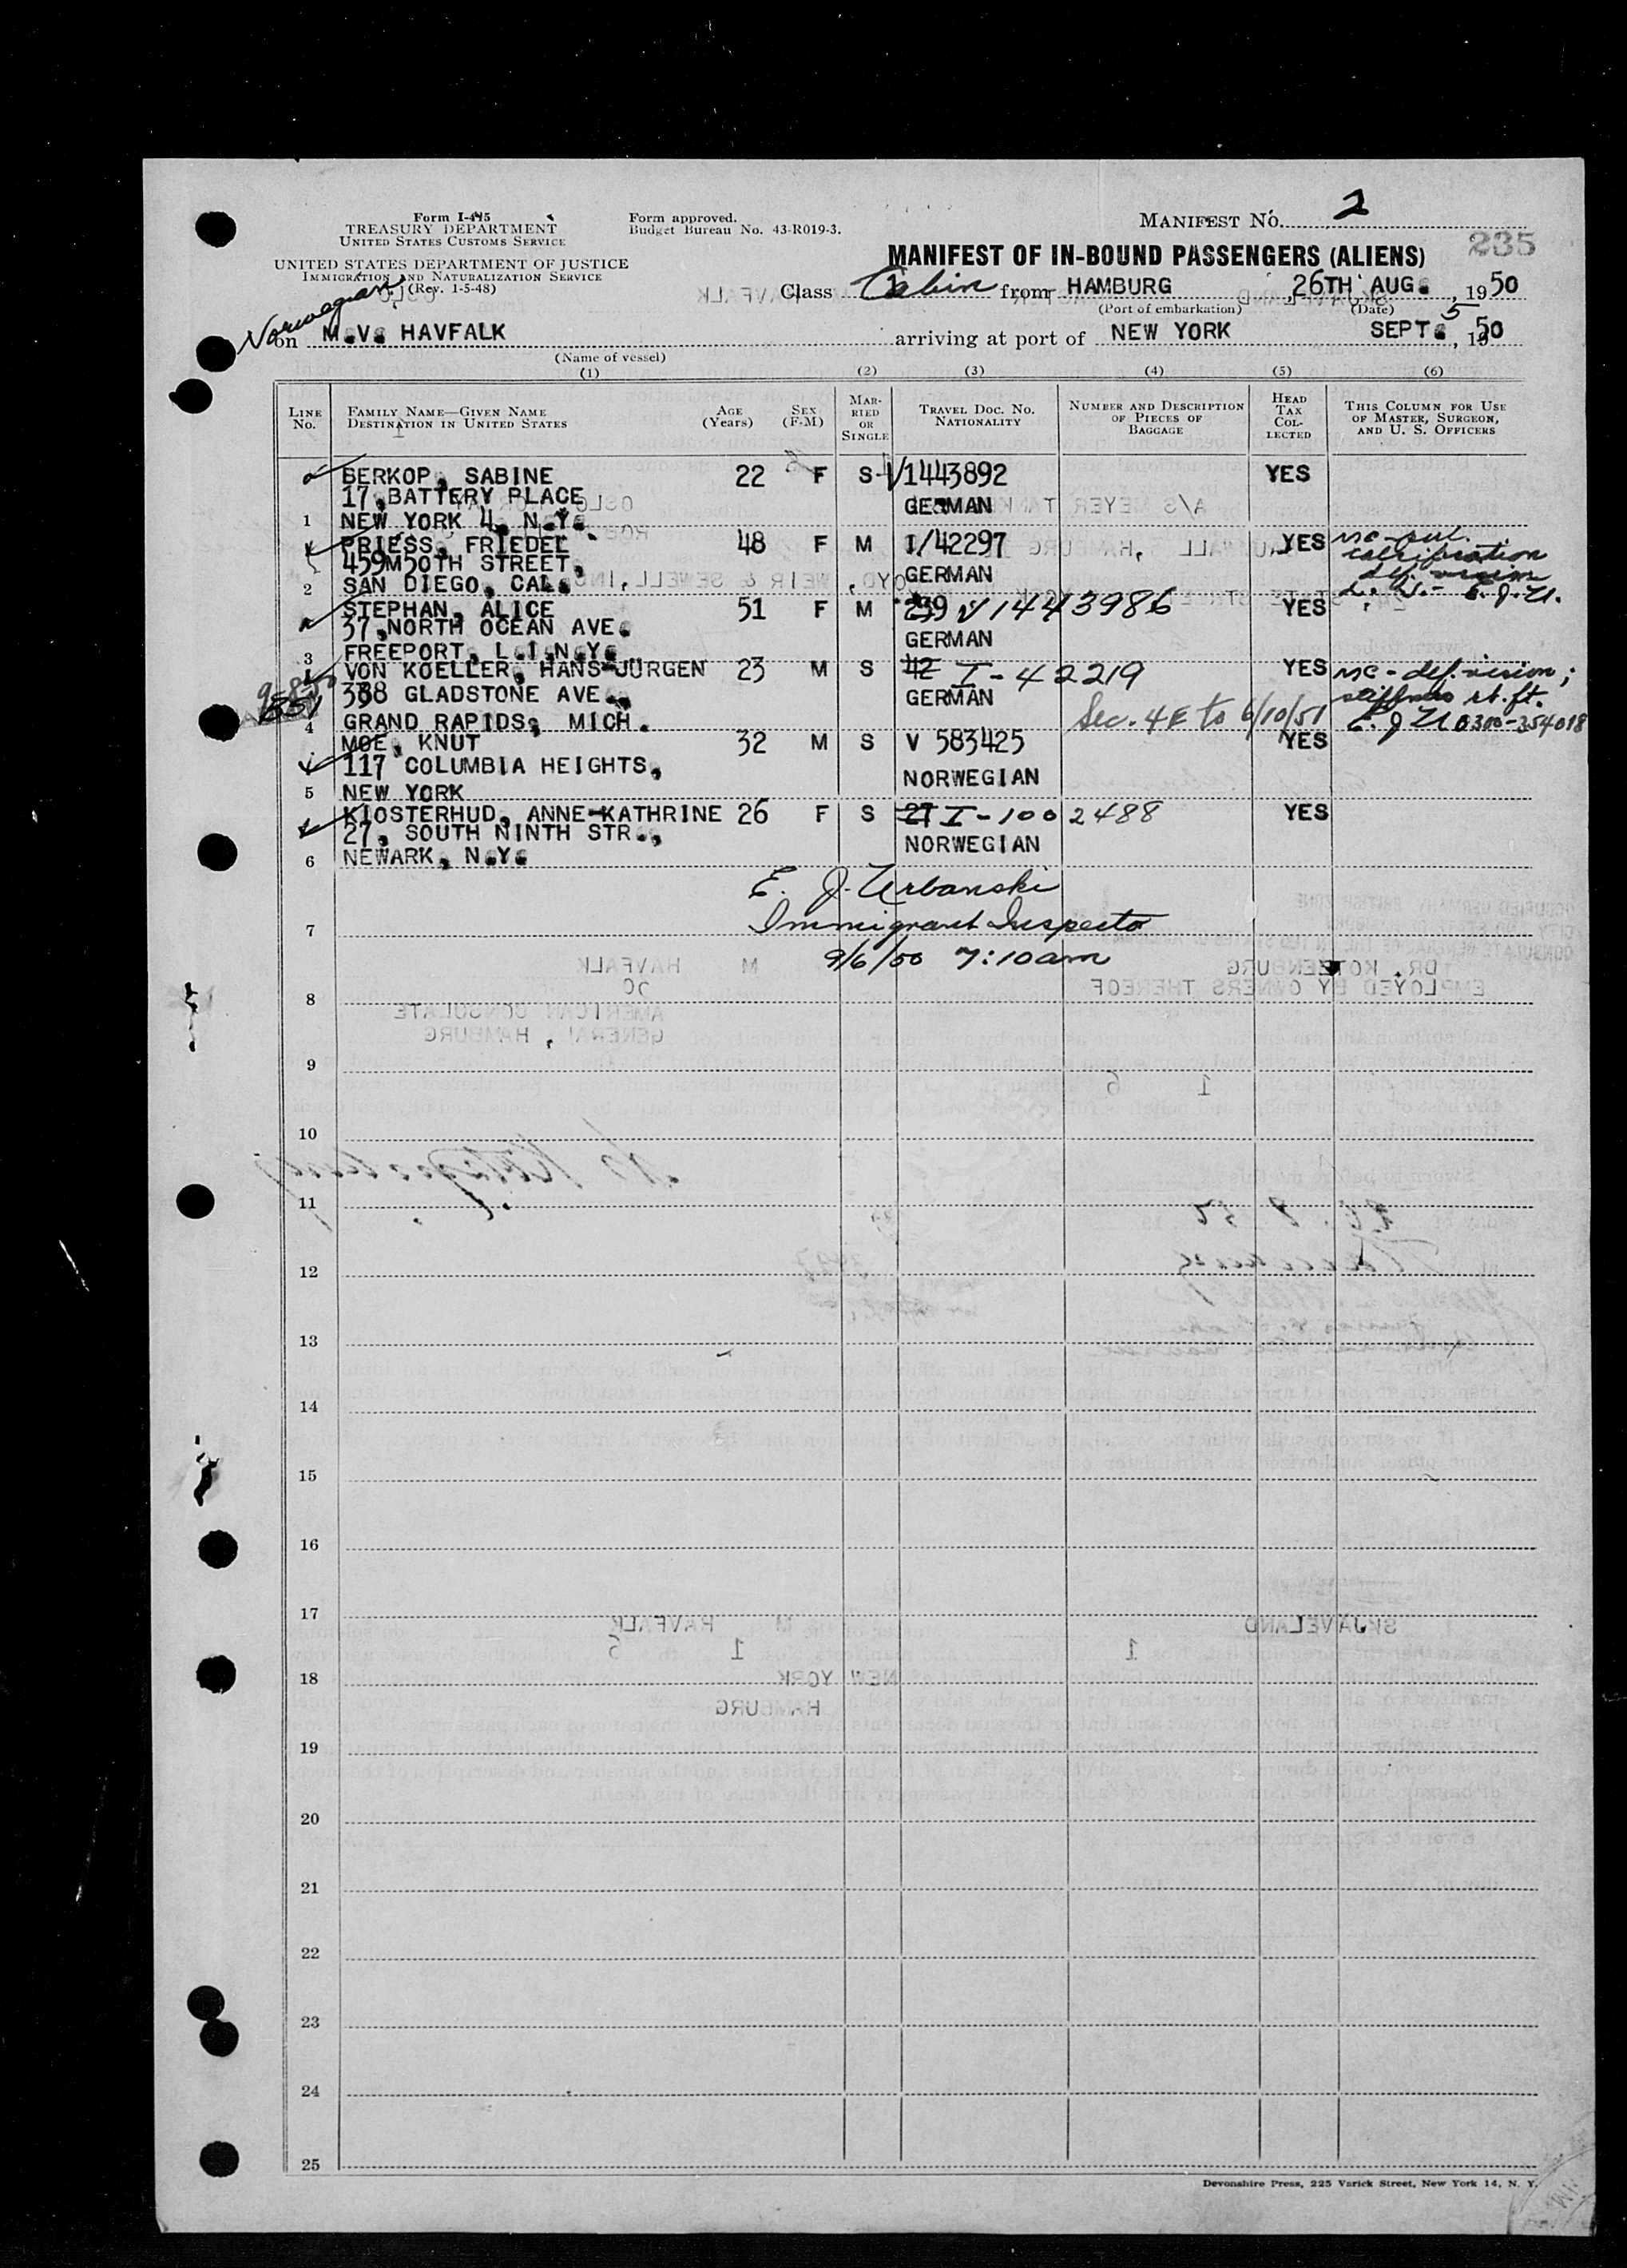 Form I-415
TREASURY DEPARTMENT
UNITED STATES CUSTOMS SERVICE
UNITED STATES DEPARTMENT OF JUSTICE
IMMIGRATION AND NATURALIZATION SERVICE
(Rev. 1-5-48)
Form approved.
Budget Bureau No. 43-R019-3.
MANIFEST NO. 2
MANIFEST OF IN-BOUND PASSENGERS (ALIENS) 235
Class Cabin from HAMBURG 26TH AUG. , 1950
(Port of embarkation) (Date)
Norwegian
on M.V. HAVFALK arriving at port of NEW YORK SEPT. 5, 1950
(Name of vessel)
(1) (2) (3) (4) (5) (6)
LINE No. FAMILY NAME—GIVEN NAME DESTINATION IN UNITED STATES AGE (Years) SEX (F-M) MARRIED OR SINGLE TRAVEL DOC. NO. NATIONALITY NUMBER AND DESCRIPTION OF PIECES OF BAGGAGE HEAD TAX COLLECTED THIS COLUMN FOR USE OF MASTER, SURGEON, AND U. S. OFFICERS
BERKOP, SABINE 22 F S V1443892 YES
17,BATTERY PLACE GERMAN
1 NEW YORK 4, N.Y.
PRIESS, FRIEDEL 48 F M I/42297 YES mc-pul.
459M50TH STREET, calcification
def. vision
2 SAN DIEGO, CAL. GERMAN E.J.U.
STEPHAN, ALICE 51 F M 239 V1443986 YES
37,NORTH OCEAN AVE. GERMAN
3 FREEPORT, L.I.N.Y.
VON KOELLER, HANS-JÜRGEN 23 M S 42 I-42219 YES mc-def. vision;
338 GLADSTONE AVE., GERMAN stiffness rt. ft.
4 GRAND RAPIDS, MICH. Sec. 4E to 6/10/51 E.J.U 0300-354018
MOE, KNUT 32 M S V 583425 YES
117 COLUMBIA HEIGHTS, NORWEGIAN
5 NEW YORK
KIOSTERHUD, ANNE-KATHRINE 26 F S 27 I-1002488 YES
27, SOUTH NINTH STR., NORWEGIAN
6 NEWARK, N.Y.
E. J. Urbanski
7 Immigrant Inspector
9/6/50 7:10am
8
9
10
11
12
13
14
15
16
17
18
19
20
21
22
23
24
25
Devonshire Press, 225 Varick Street, New York 14, N. Y.